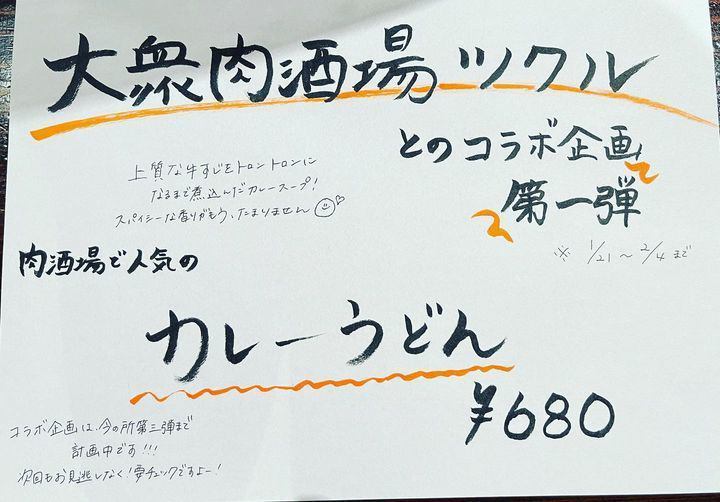 大衆肉酒場ツクル
とのコラボ企画
第一弾
※ 1/21〜2/4まで
上質な牛すじをトロントロンに
なるまで煮込んだカレースープ!
スパイシーな香りがもう、たまりません
肉酒場で人気の
カレーうどん
¥680
コラボ企画は、今の所第三弾まで
計画中です!!!
次回もお見逃しなく!要チェックですよー!